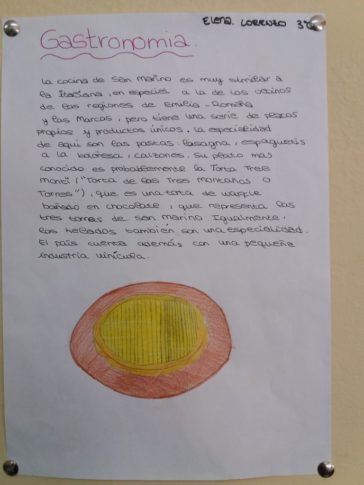 Elena Lorenzo 3º
Gastronomia.
La cocina de San Marino es muy similar a
la Italiana, en especial a la de los vecinos
de las regiones de Emilia-Romaña
y las Marcas, pero tiene una serie de platos
propios y productos únicos. La especialidad
de aqui son las pastas: lasagna, espaguetis
a la boloñesa, calzones. Su plato mas
conocido es probablemente la Torta Tres
Monti ("Tarta de las Tres montañas o
Torres"), que es una torta de waffle
bañado en chocolate, que representa las
tres torres de San Marino. Igualmente,
los helados también son una especialidad.
El país cuenta además con una pequeña
industria vinícola.